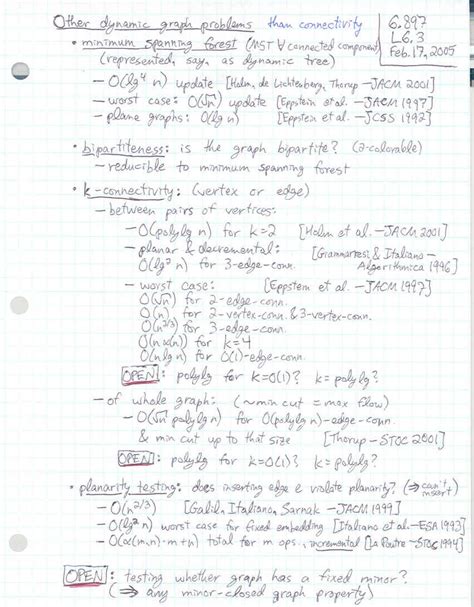 Other dynamic graph problems than connectivity
6.897
L6.3
Feb.17, 2005
• minimum spanning forest (MST ∀ connected component)
(represented, say, as dynamic tree)
– O(lg⁴ n) update [Holm, de Lichtenberg, Thorup – JACM 2001]
– worst case: O(√n) update [Eppstein et al. – JACM 1997]
– plane graphs: O(lg n) [Eppstein et al. – JCSS 1992]
• bipartiteness: is the graph bipartite? (2-colorable)
– reducible to minimum spanning forest
• k-connectivity: (vertex or edge)
– between pairs of vertices:
– O(polylg n) for k=2 [Holm et al. – JACM 2001]
– planar & decremental: [Giammarresi & Italiano –
O(lg² n) for 3-edge-conn. Algorithmica 1996]
– worst case: [Eppstein et al. – JACM 1997]
O(√n) for 2-edge-conn.
O(n) for 2-vertex-conn. & 3-vertex-conn.
O(n^2/3) for 3-edge-conn.
O(n α(n)) for k=4
O(n lg n) for O(1)-edge-conn.
OPEN: polylg for k=O(1)? k=polylg?
– of whole graph: (~min cut = max flow)
– O(√n polylg n) for O(polylg n)-edge-conn.
& min cut up to that size [Thorup – STOC 2001]
OPEN: polylg for k=O(1)? k=polylg?
• planarity testing: does inserting edge e violate planarity? (⇒ can't insert)
– O(n^2/3) [Galil, Italiano, Sarnak – JACM 1999]
– O(lg² n) worst case for fixed embedding [Italiano et al. – ESA 1993]
– O(α(m,n)·m+n) total for m ops., incremental [La Poutre – STOC 1994]
OPEN: testing whether graph has a fixed minor?
(⇒ any minor-closed graph property)